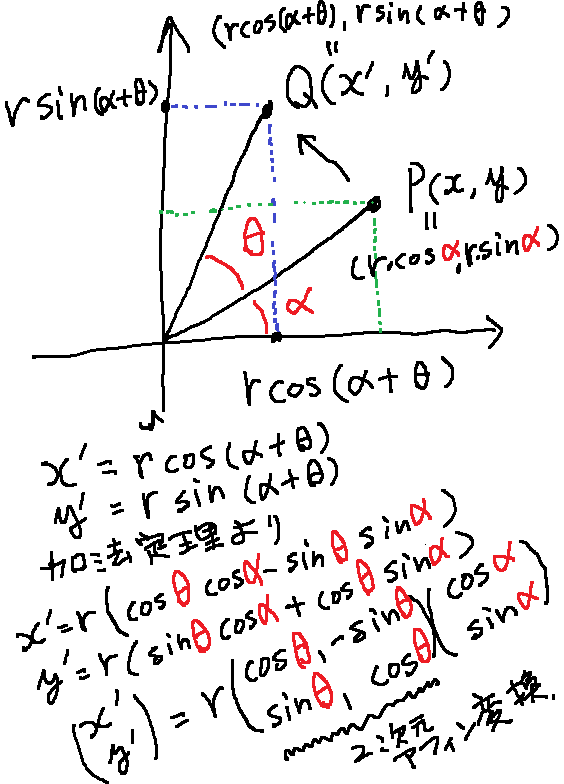 (rcos(α+θ), rsin(α+θ)
=
Q(x', y')
rsin(α+θ)
P(x, y)
=
(r.cosα, r.sinα)
θ
α
rcos(α+θ)
x' = r cos(α+θ)
y' = r sin(α+θ)
加法定理より
x'=r(cosθ cosα-sinθ sinα)
y'=r(sinθ cosα+cosθ sinα)
(x' y') = r(cosθ, -sinθ sinθ, cosθ)(cosα sinα)
2次元
アフィン変換.